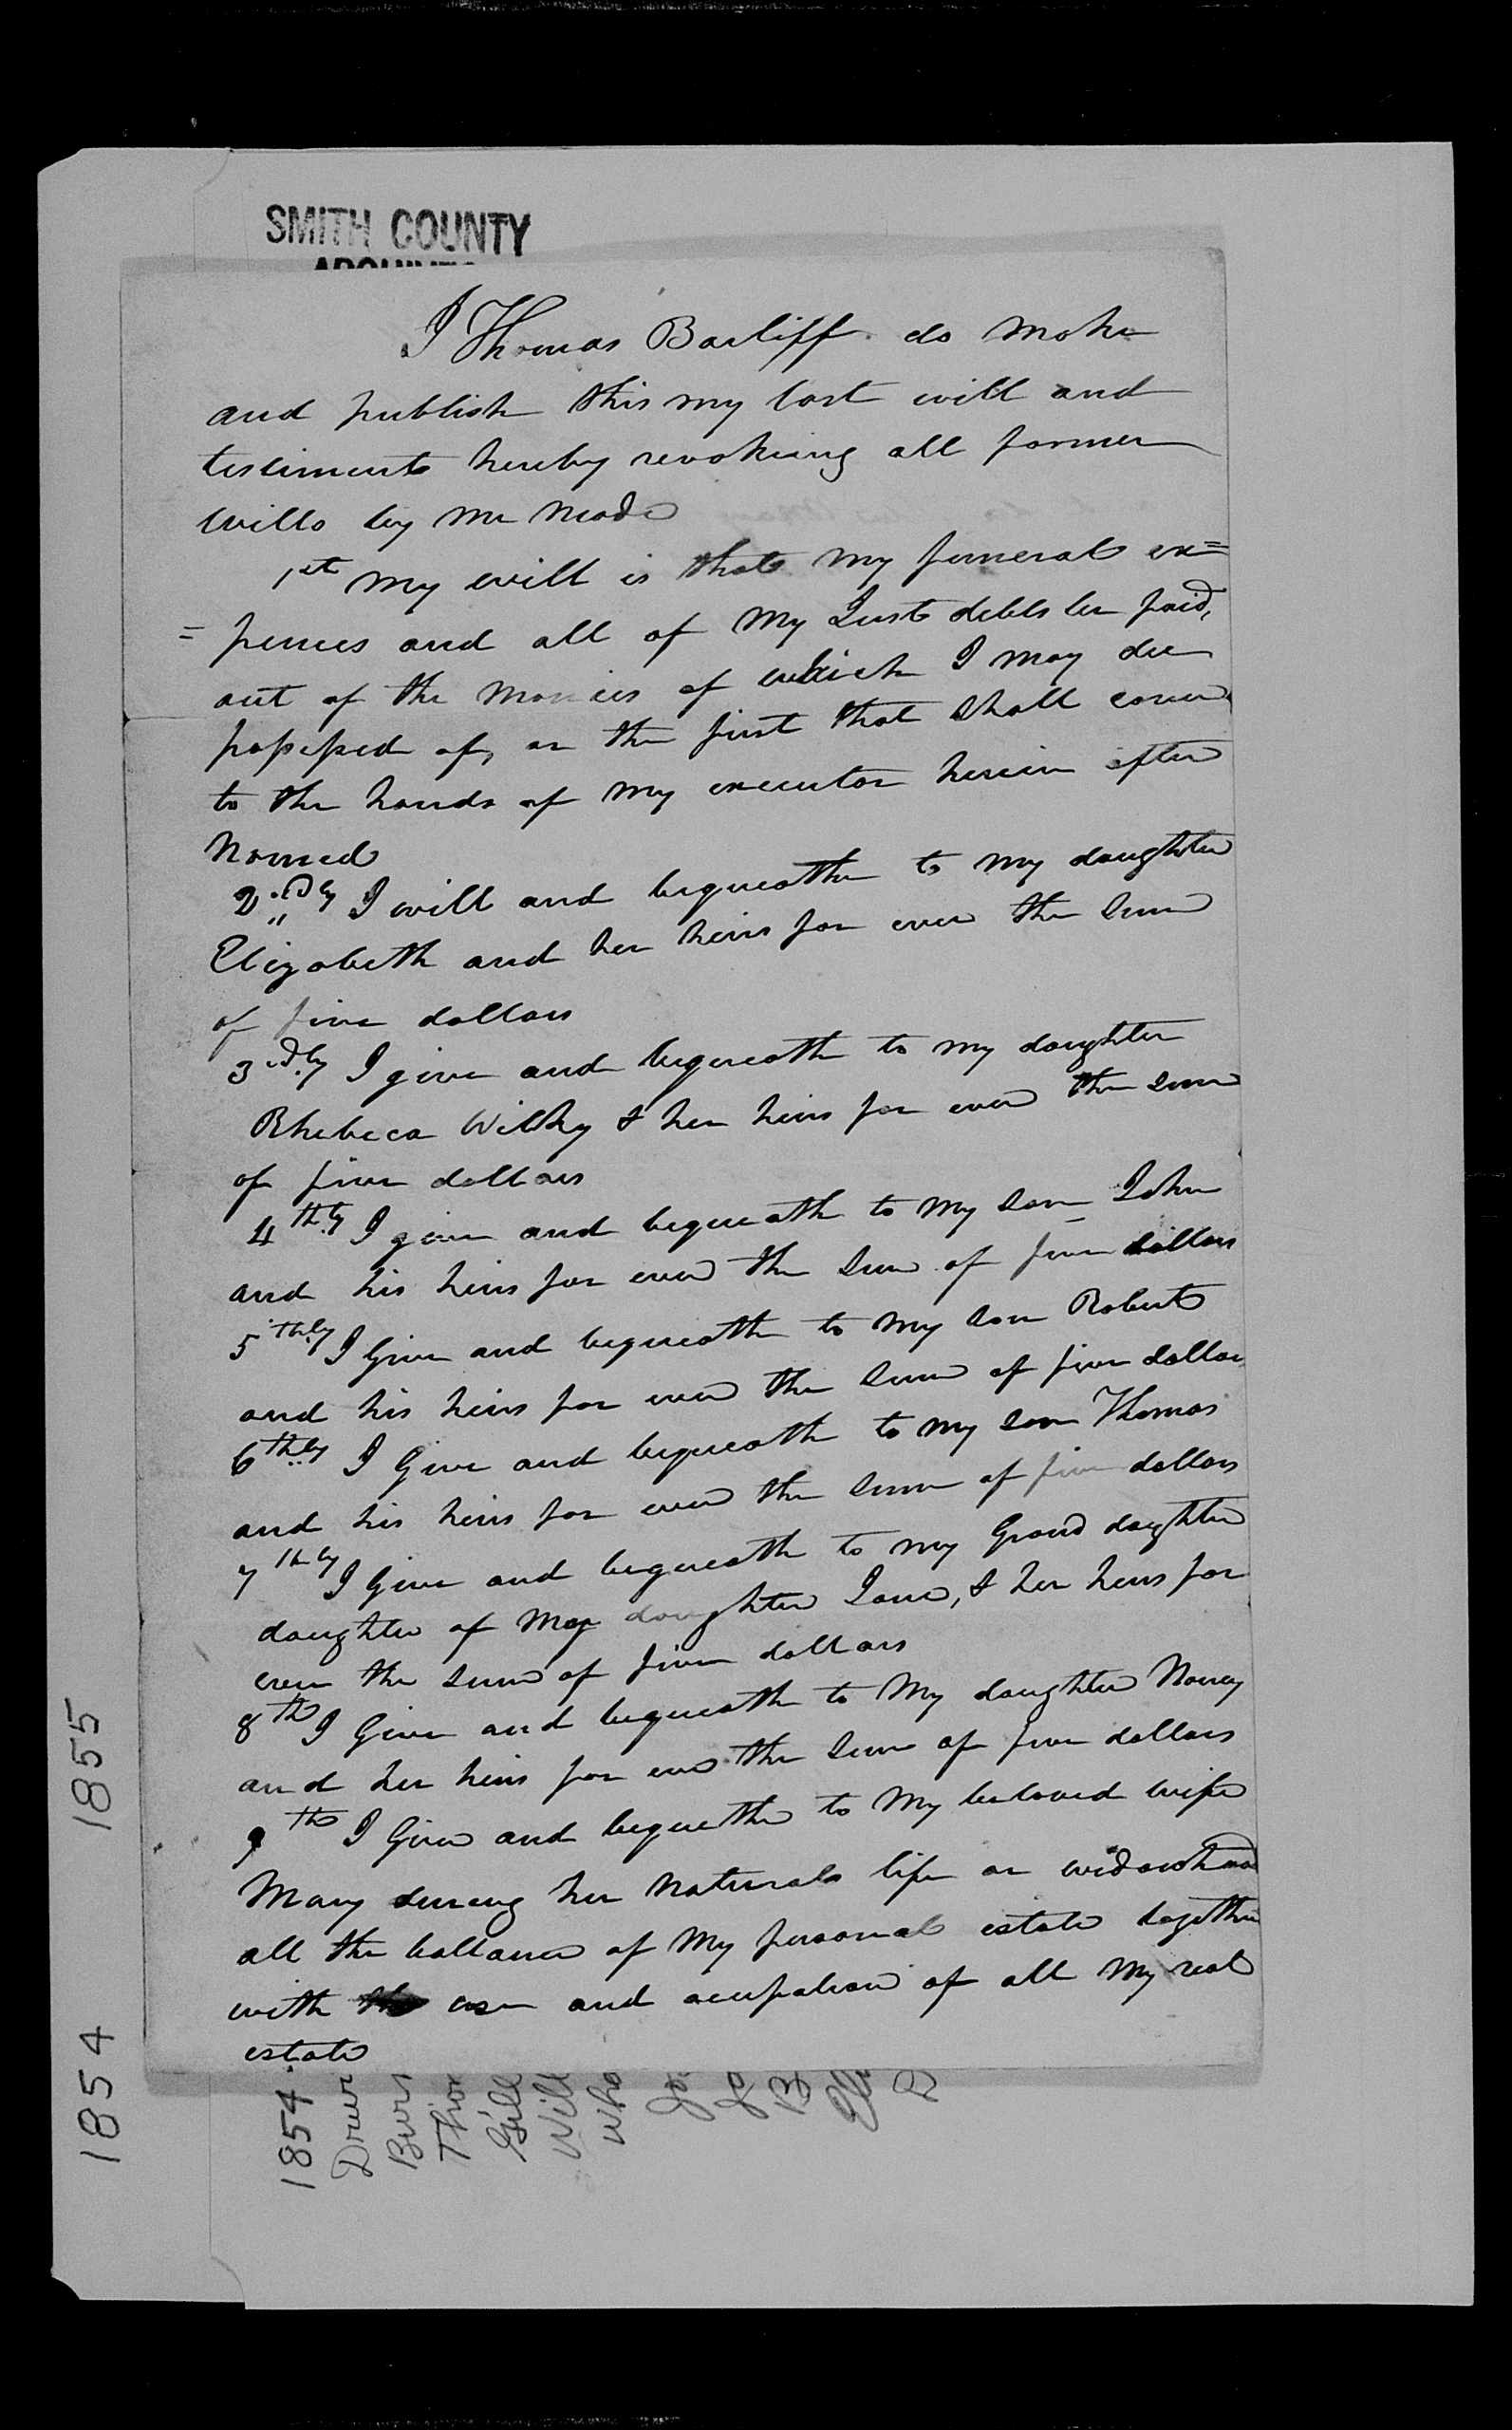 SMITH COUNTY
I Thomas Bailiff do make
and publish this my last will and
testiment hereby revoking all former
wills by me made
1st my will is that my funeral ex=
= pences and all of my Just debts be paid,
out of the monies of which I may die
possessed of, or the first that shall come
to the hands of my executor herein after
Named
2ndly I will and bequeathe to my daughter
Elizabeth and her heirs for ever the sum
of five dollars
3rdly I give and bequeath to my daughter
Rhebeca & her heirs for ever the sum
of five dollars
4thly I give and bequeath to my son John
and his heirs for ever the sum of five dollars
5thly I Give and bequeath to my son Robert
and his heirs for ever the sum of five dollars
6thly I Give and bequeath to my son Thomas
and his heirs for ever the sum of five dollars
7thly I Give and bequeath to my Grand daughter
daughter of my daughter Jane, & her heirs for
ever the sum of five dollars
8th I Give and bequeath to my daughter Nancy
and her heirs for ever the sum of five dollars
9th I Give and bequethe to my beloved wife
Mary dureng her natural life or widowhood
all the ballance of my personal estate together
with the use and occupation of all my real
estate
1855
1854
1854